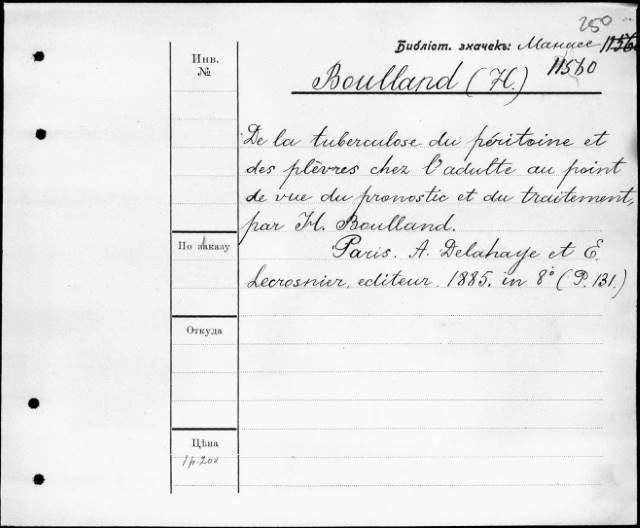 250
Библіот. значекъ: Манассе 11560
11560
Инв.
№
Boulland (H.)
De la tuberculose du péritoine et
des plèvres chez l'adulte au point
de vue du pronostic et du traitement,
par H. Boulland.
Paris. A. Delahaye et E.
Lecrosnier, editeur. 1885. in 8° (P. 131.)
По заказу
Откуда
Цѣна
1р. 20к